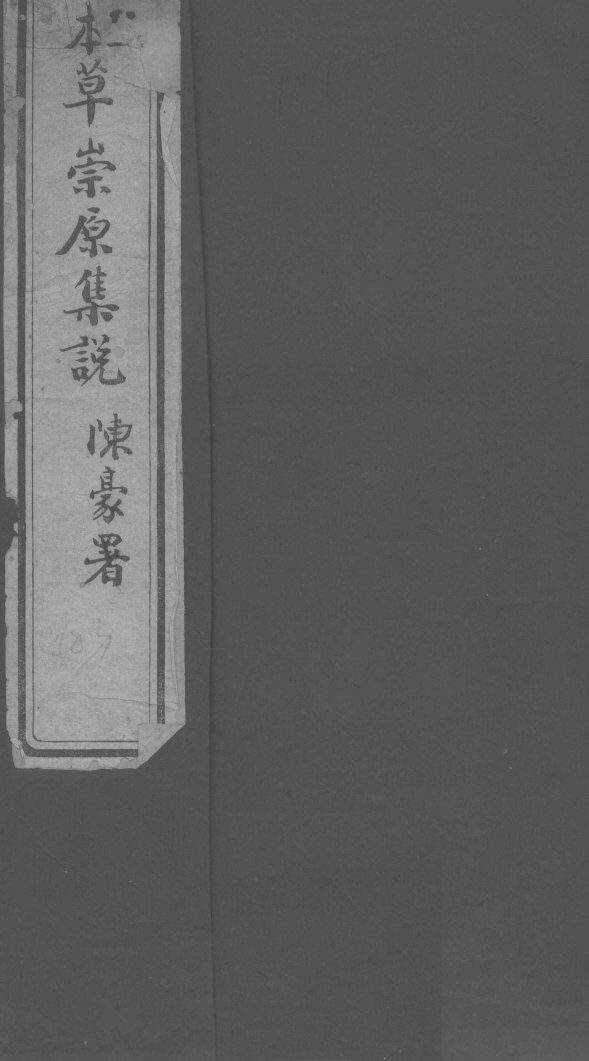 本草崇原集説
陳豪署